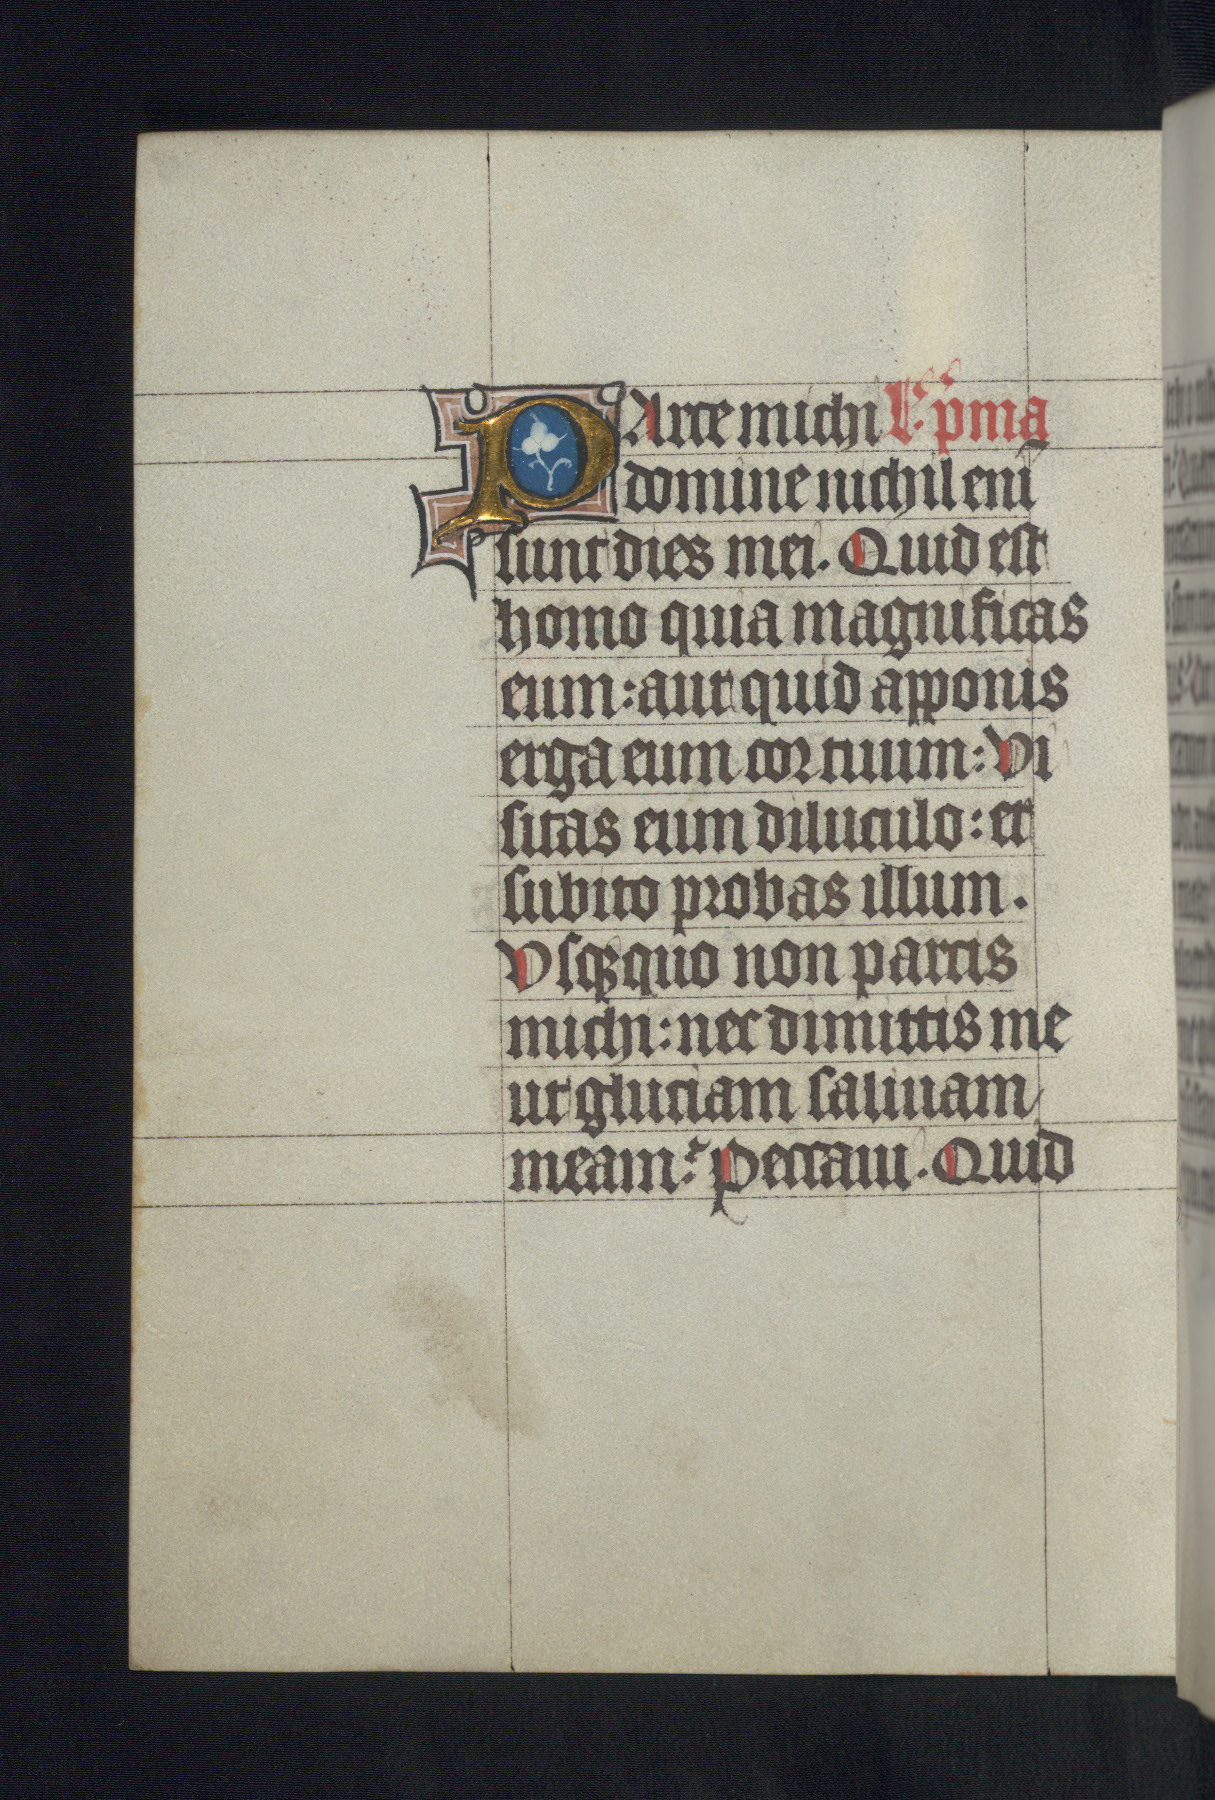 PArce michi L'c' p'ma
domine nichil enī
sunt dies mei. Quid est
homo quia magnificas
eum: aut quid apponis
erga eum cor tuum: Vi
sitas eum diluculo: et
subito probas illum.
Vsqꝫquo non parcis
michi: nec dimittis me
ut gluciam saliuam
meam: Peccaui. Quid